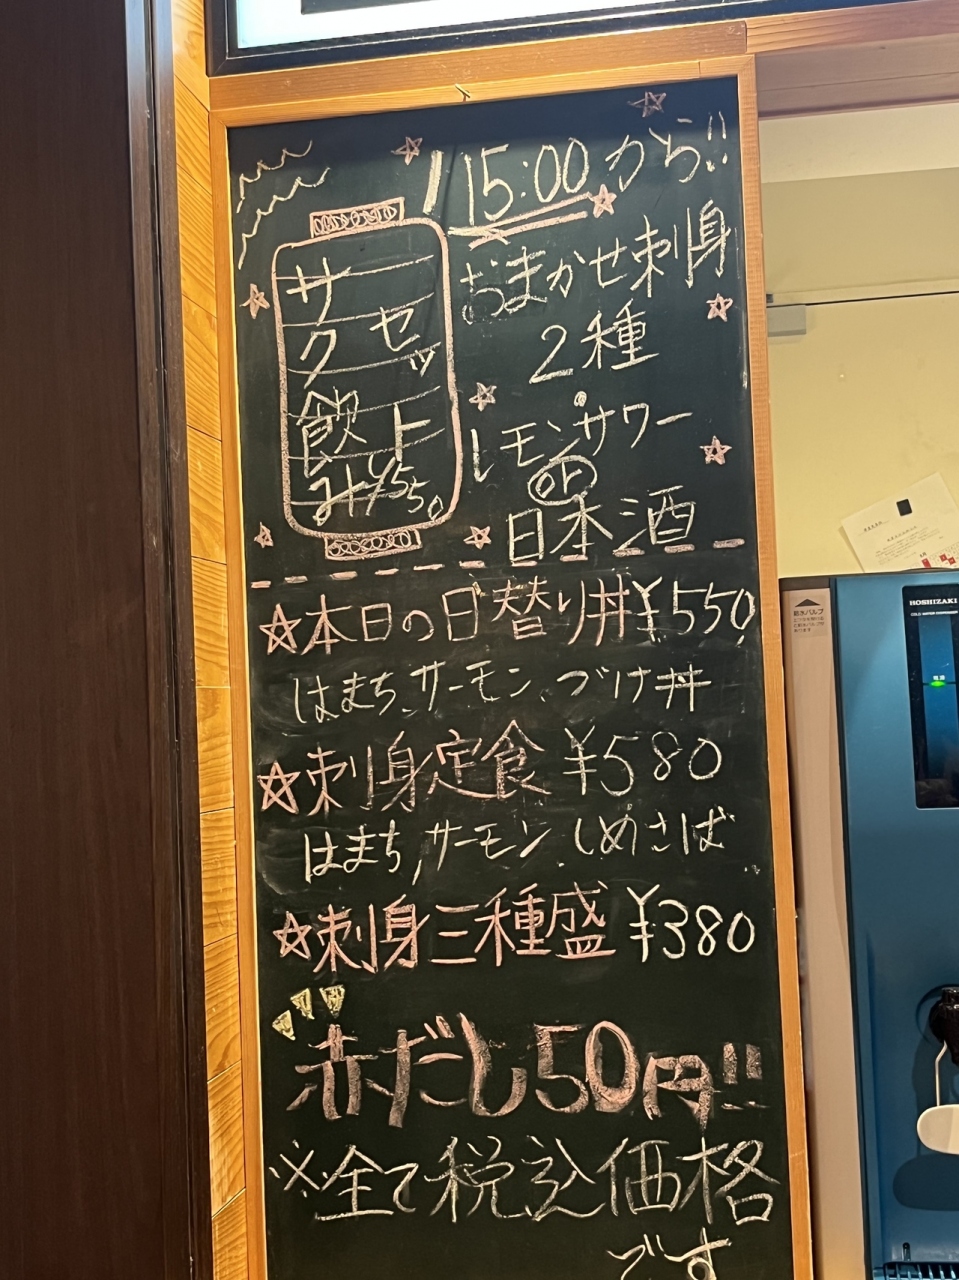 15:00から!!
サク飲み
セット
¥550
おまかせ刺身
2種
レモンサワー
or
日本酒
☆本日の日替り丼¥550
はまち、サーモン、づけ丼
☆刺身定食 ¥580
はまち、サーモン、しめさば
☆刺身三種盛 ¥380
赤だし50円!!
※全て税込価格
です
HOSHIZAKI